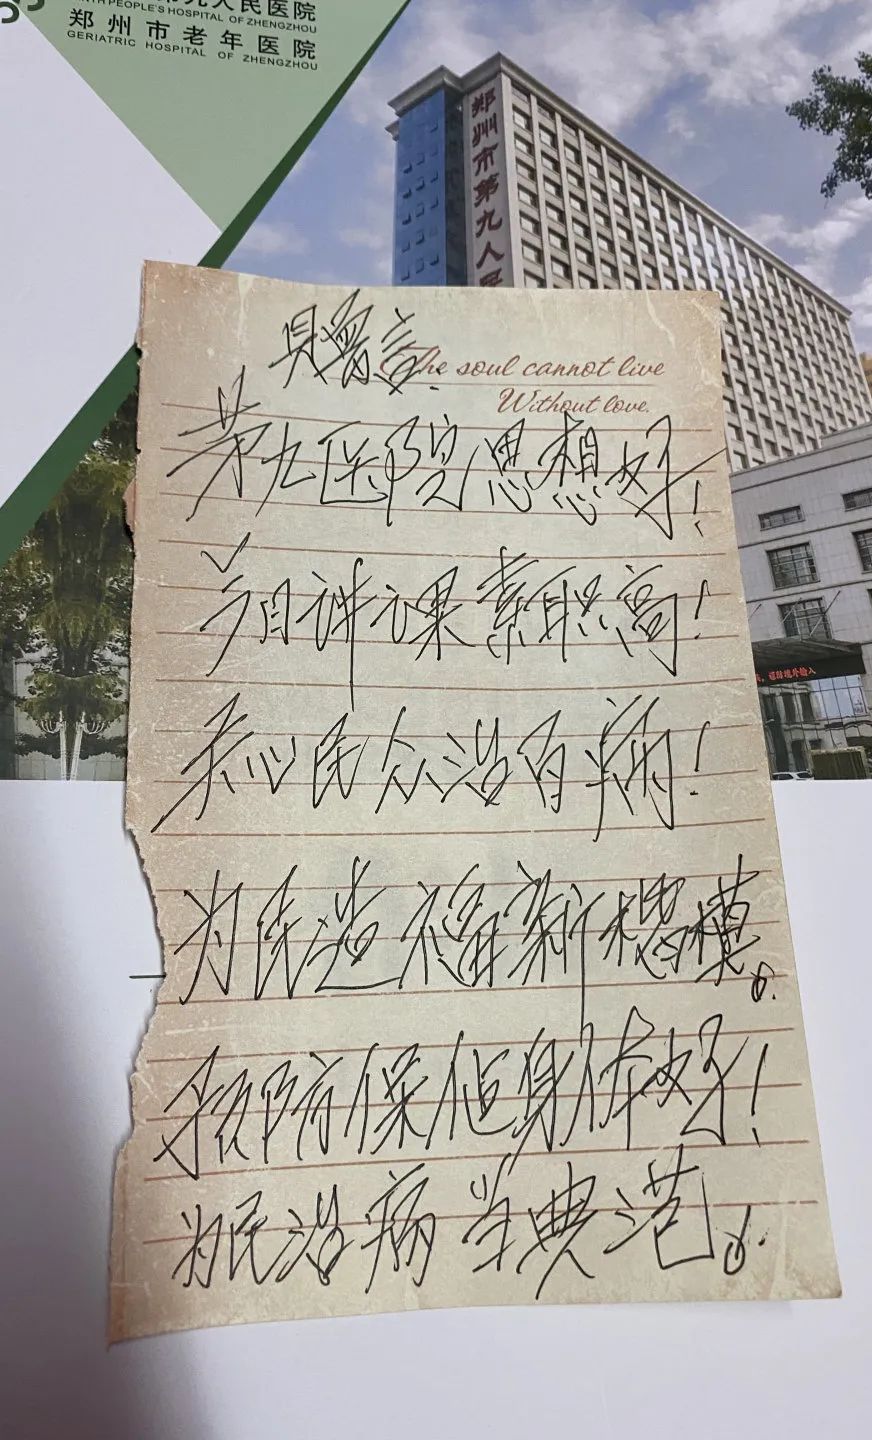 第九人民医院
NINTH PEOPLE'S HOSPITAL OF ZHENGZHOU
郑州市老年医院
GERIATRIC HOSPITAL OF ZHENGZHOU
郑州市第九人民
The soul cannot live
Without love.
留言.
第九医院思想好!
今日讲课素职高!
关心民众治百病!
为民造福新楷模。
预防保健身体好!
为民治病当典范。